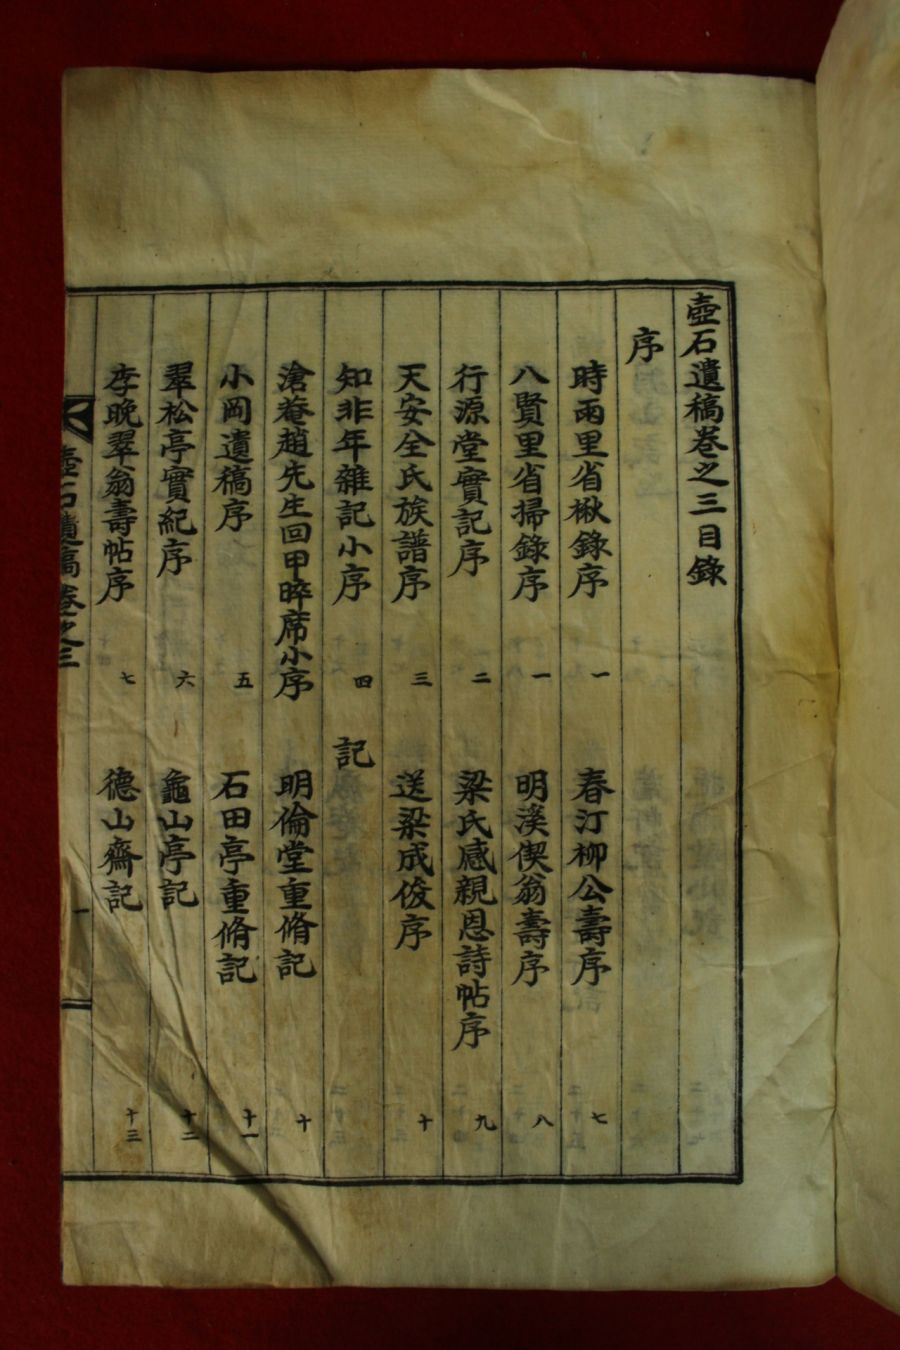 壺石遺稿卷之三目錄
序
時雨里省楸錄序 一
八賢里省掃錄序 一
行源堂實記序 二
天安全氏族譜序 三
知非年雜記小序 四
滄菴趙先生回甲晬席小序
小岡遺稿序 五
翠松亭實紀序 六
李晚翠翁壽帖序 七
春汀柳公壽序 七
明溪偰翁壽序 八
梁氏感親恩詩帖序 九
送梁成俊序 十
記
明倫堂重脩記 十
石田亭重脩記 十一
龜山亭記 十二
德山齋記 十三
壺石遺稿 卷之三
一